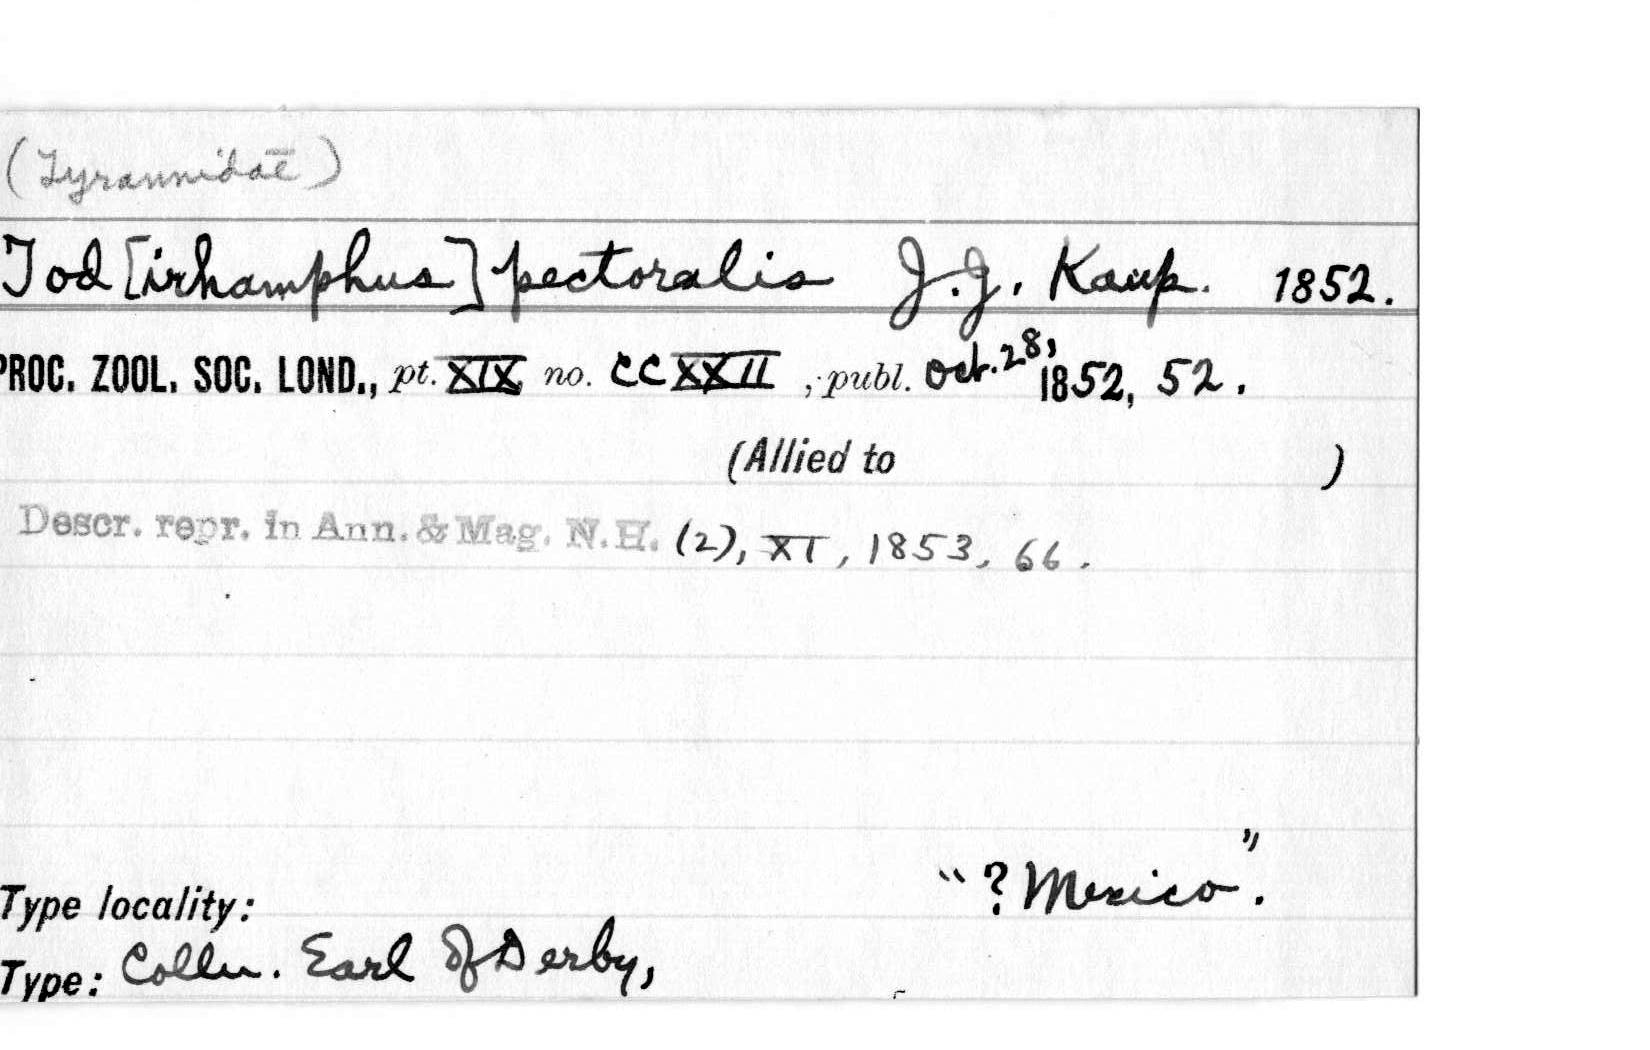 (Tyrannidae)
Tod[irhamphus] pectoralis J.J. Kaup. 1852.
PROC. ZOOL. SOC. LOND., pt. XIX, no. CCXXII, publ. Oct. 28, 1852, 52.
(Allied to )
Descr. repr. in Ann. & Mag. N.H. (2), XI, 1853, 66.
Type locality: "? Mexico".
Type: Colln. Earl of Derby,